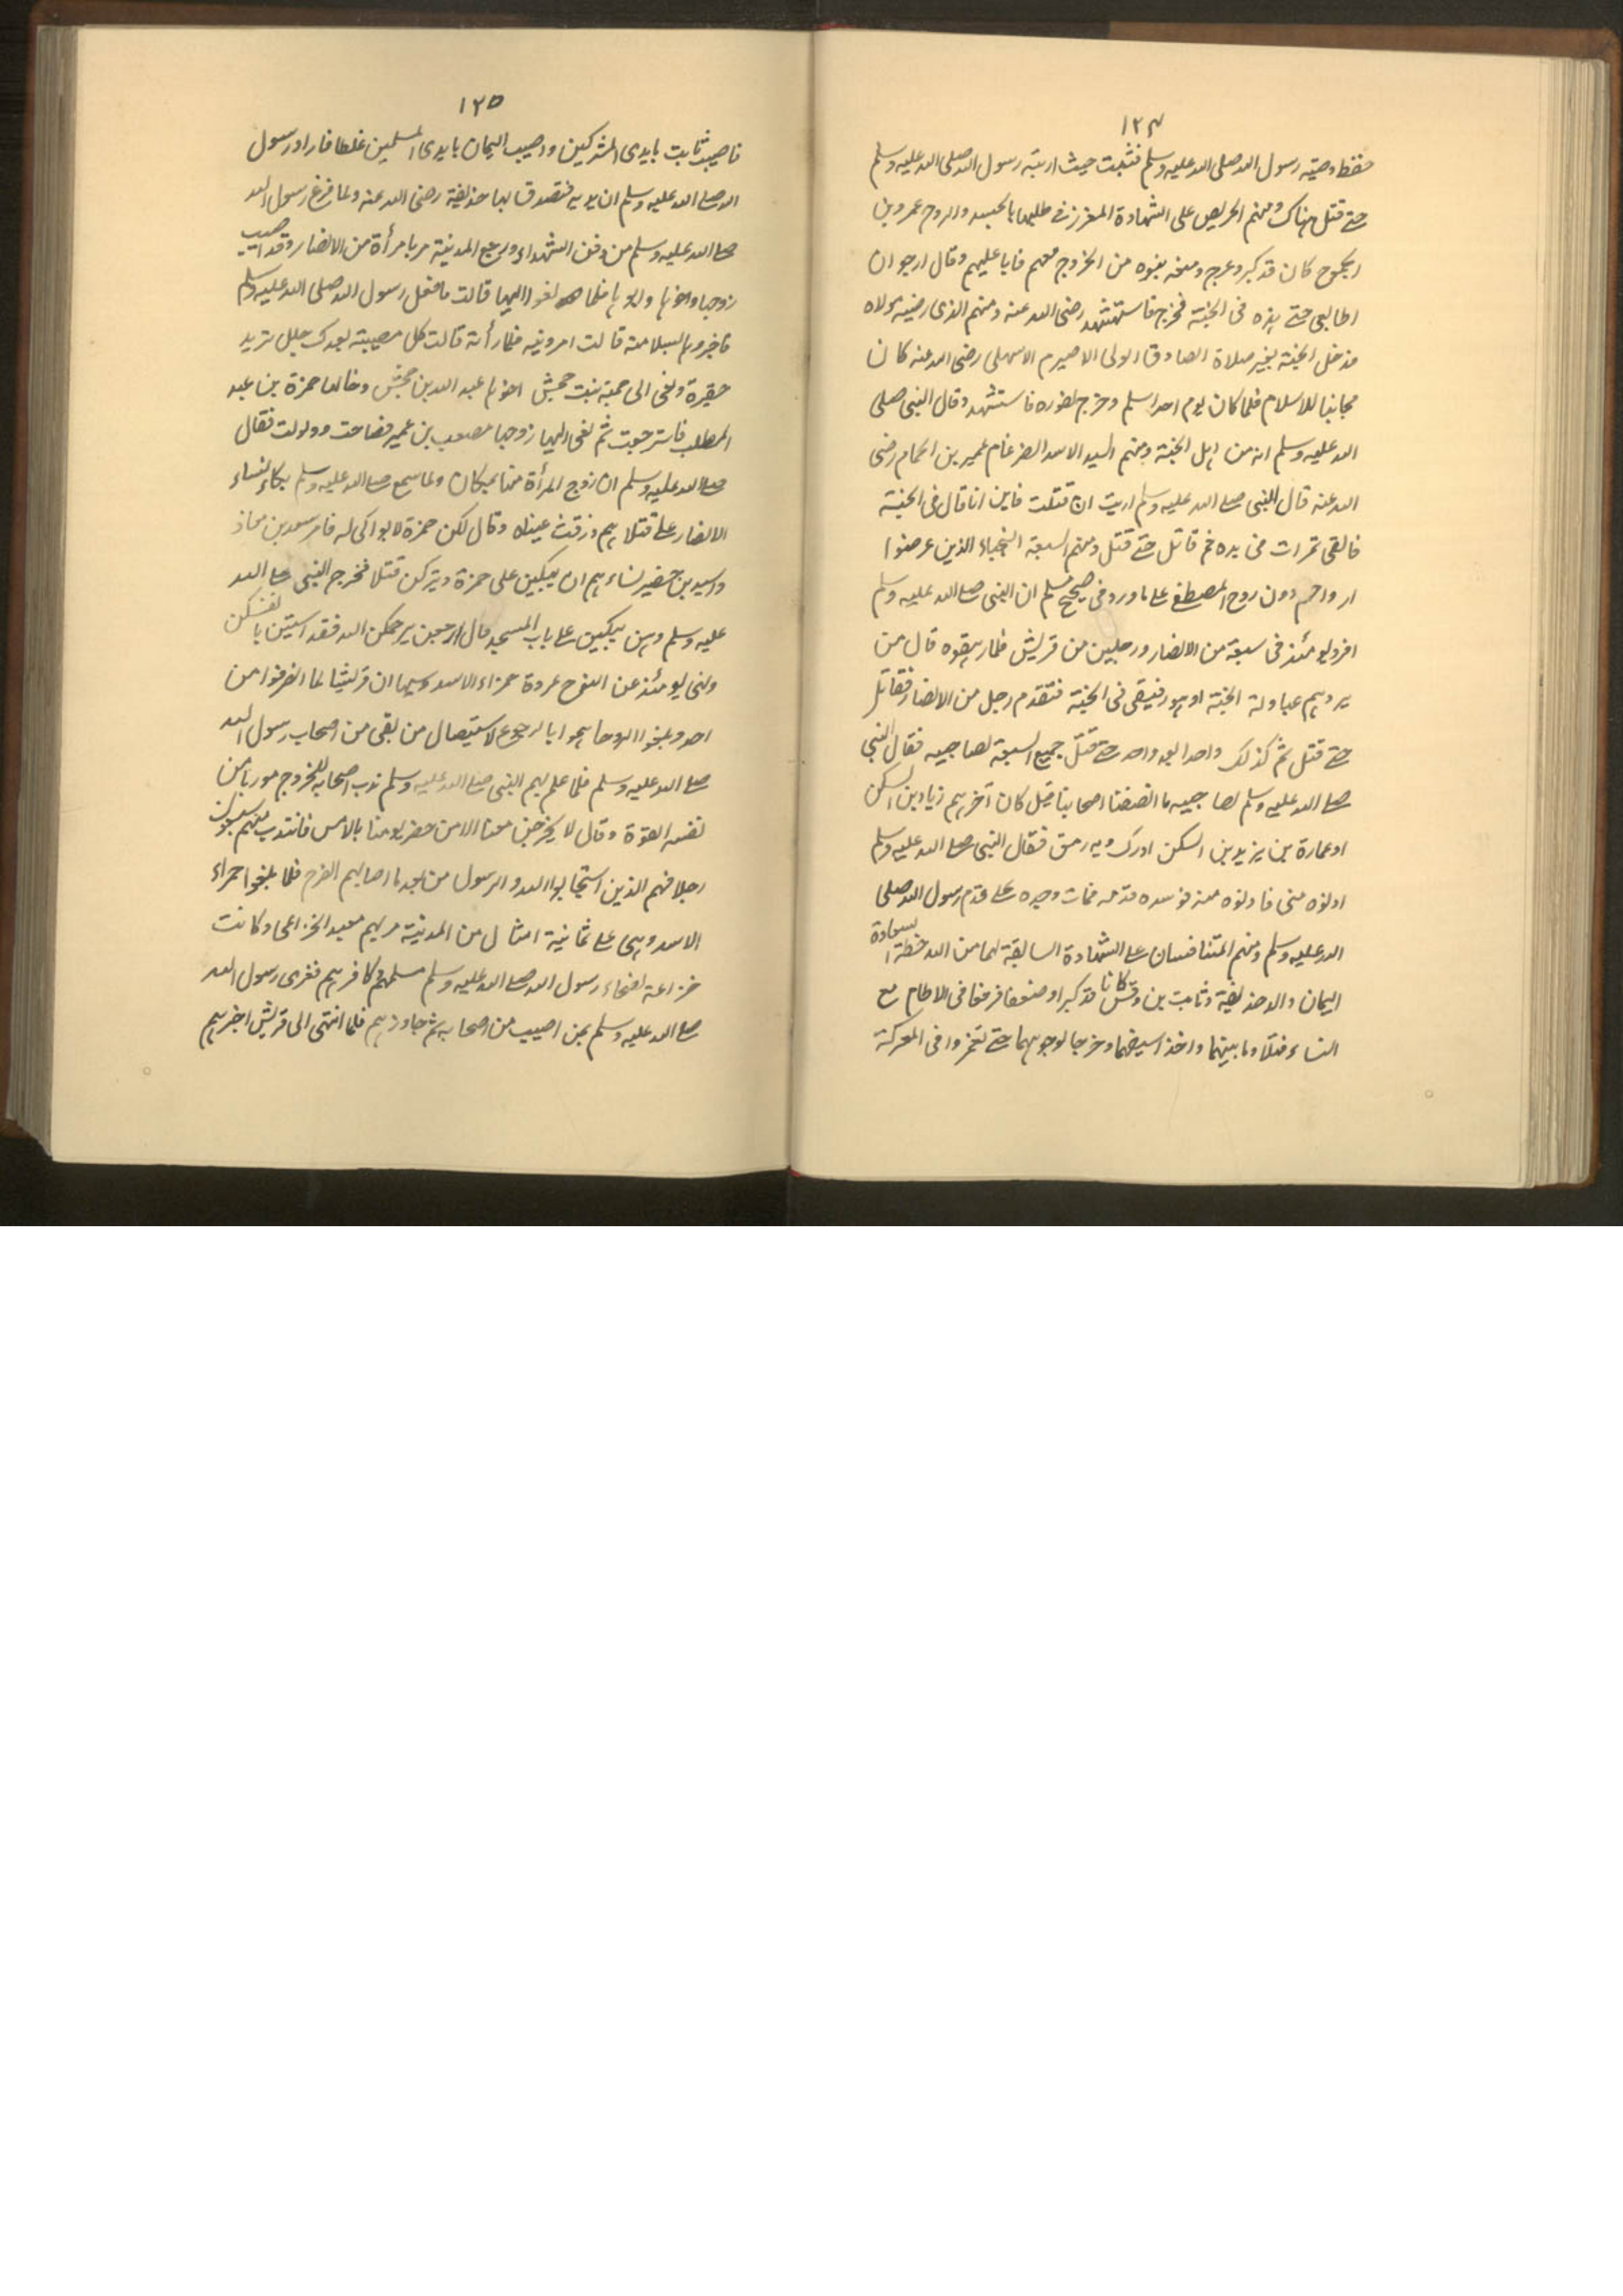 ١٢٤
حفظ وصية رسول الله صلى الله عليه وسلم فثبت حيث اربته رسول الله صلى الله عليه وسلم
حتے قتل هناك ومنهم الحريص على الشهادة المغرز فے طلبها بالجسد والروح عمرو بن
الجموح كان قد كبر وعرج ومنعه بنوه من الخروج معهم فابا عليهم وقال ارجو ان
اطا بعرجتے هذه فى الجنة فخرج فاستشهد رضى الله عنه ومنهم الذى رضيه مولاه
فدخل الجنة بغير صلاة الصادق الولى الاصيرم الاشهلى رضى الله عنه كان
مجانبا للاسلام فلما كان يوم احد اسلم وخرج لفوره فاستشهد وقال النبى صلى
الله عليه وسلم انه من اهل الجنة ومنهم السيد الاسد الضرغام عمير بن الحمام رضى
الله عنه قال للنبى صلے الله عليه وسلم اريت ان قتلت فاين انا قال فى الجنة
فالقى تمرات فى يده ثم قاتل حتے قتل ومنهم السبعة النجباء الذين عرضوا
ارواحهم دون روح المصطفے علے ما ورد فى صحيح مسلم ان النبى صلے الله عليه وسلم
افرد يومئذ فى سبعة من الانصار ورجلين من قريش فلما رهقوه قال من
يردهم عنا وله الجنة او هو رفيقى فى الجنة فتقدم رجل من الانصار فقاتل
حتے قتل ثم كذلك واحدا بعد واحد حتے قتل جميع السبعة لصاحبيه فقال النبى
صلے الله عليه وسلم لصاحبيه ما انصفنا اصحابنا قيل كان آخرهم زياد بن السكن
او عمارة بن يزيد بن السكن ادرك وبه رمق فقال النبى صلے الله عليه وسلم
ادنوه منى فادنوه منه فوسده قدمه فمات وخده علے قدم رسول الله صلى
الله عليه وسلم ومنهم المتنافسان علے الشهادة السابقة لهما من الله خطة السعادة
اليمان والد حذيفة وثابت بن وقش كانا قد كبرا وضعفا فرفعا فى الاطام مع
النساء فتلاوما بينهما واخذ اسيفهما وخرجا لوجوههما حتے تغمروا فى المعركة
١٢٥
فاصيب ثابت بايدى المشركين واصيب اليمان بايدى المسلمين غلطا فاراد رسول
الله صلے الله عليه وسلم ان يديه فتصدق بها حذيفة رضى الله عنه ولما فرغ رسول الله
صلے الله عليه وسلم من دفن الشهداء ورجع المدينة مر بامرأة من الانصار وقد اصيب
زوجها واخوها وابوها فلما نعوا اليها قالت ما فعل رسول الله صلى الله عليه وسلم
فاخبروها بسلامته قالت ارونيه فلما رأته قالت كل مصيبة بعدك جلل تريد
حقيرة ونعى الى حمنة بنت جحش اخوها عبد الله بن جحش وخالها حمزة بن عبد
المطلب فاسترجعت ثم نعى اليها زوجها مصعب بن عمير فصاحت وولولت فقال
صلے الله عليه وسلم ان زوج المرأة منها بمكان ولما سمع صلے الله عليه وسلم بكاء نساء
الانصار علے قتلاهم ذرفت عيناه وقال لكن حمزة لا بواكى له فامر سعد بن معاذ
واسيد بن حضير نساءهم ان يبكين على حمزة ويتركن قتلا فخرج النبى صلے الله
عليه وسلم وهن يبكين علے باب المسجد قال ارجعن يرحمكن الله فقد اسيتن بانفسكن
ونهى يومئذ عن النوح غزوة حمراء الاسد وسببها ان قريشا لما انصرفوا من
احد وبلغوا الروحا هموا بالرجوع لاستيصال من بقى من اصحاب رسول الله
صلے الله عليه وسلم فلما علم بهم النبى صلے الله عليه وسلم ندب اصحابه للخروج موريا من
نفسه القوة وقال لا يخرجن معنا الا من حضر يومنا بالامس فانتدب منهم سبعون
رجلا فهم الذين استجابوا لله والرسول من بعد ما اصابهم القرح فلما بلغوا حمراء
الاسد وهى علے ثمانية اميال من المدينة مر بهم معبد الخزاعى وكانت
خزاعة نصحاء رسول الله صلے الله عليه وسلم مسلمهم وكافرهم فعزى رسول الله
صلے الله عليه وسلم بمن اصيب من اصحابه ثم جاوزهم فلما انتهى الى قريش اخبرهم